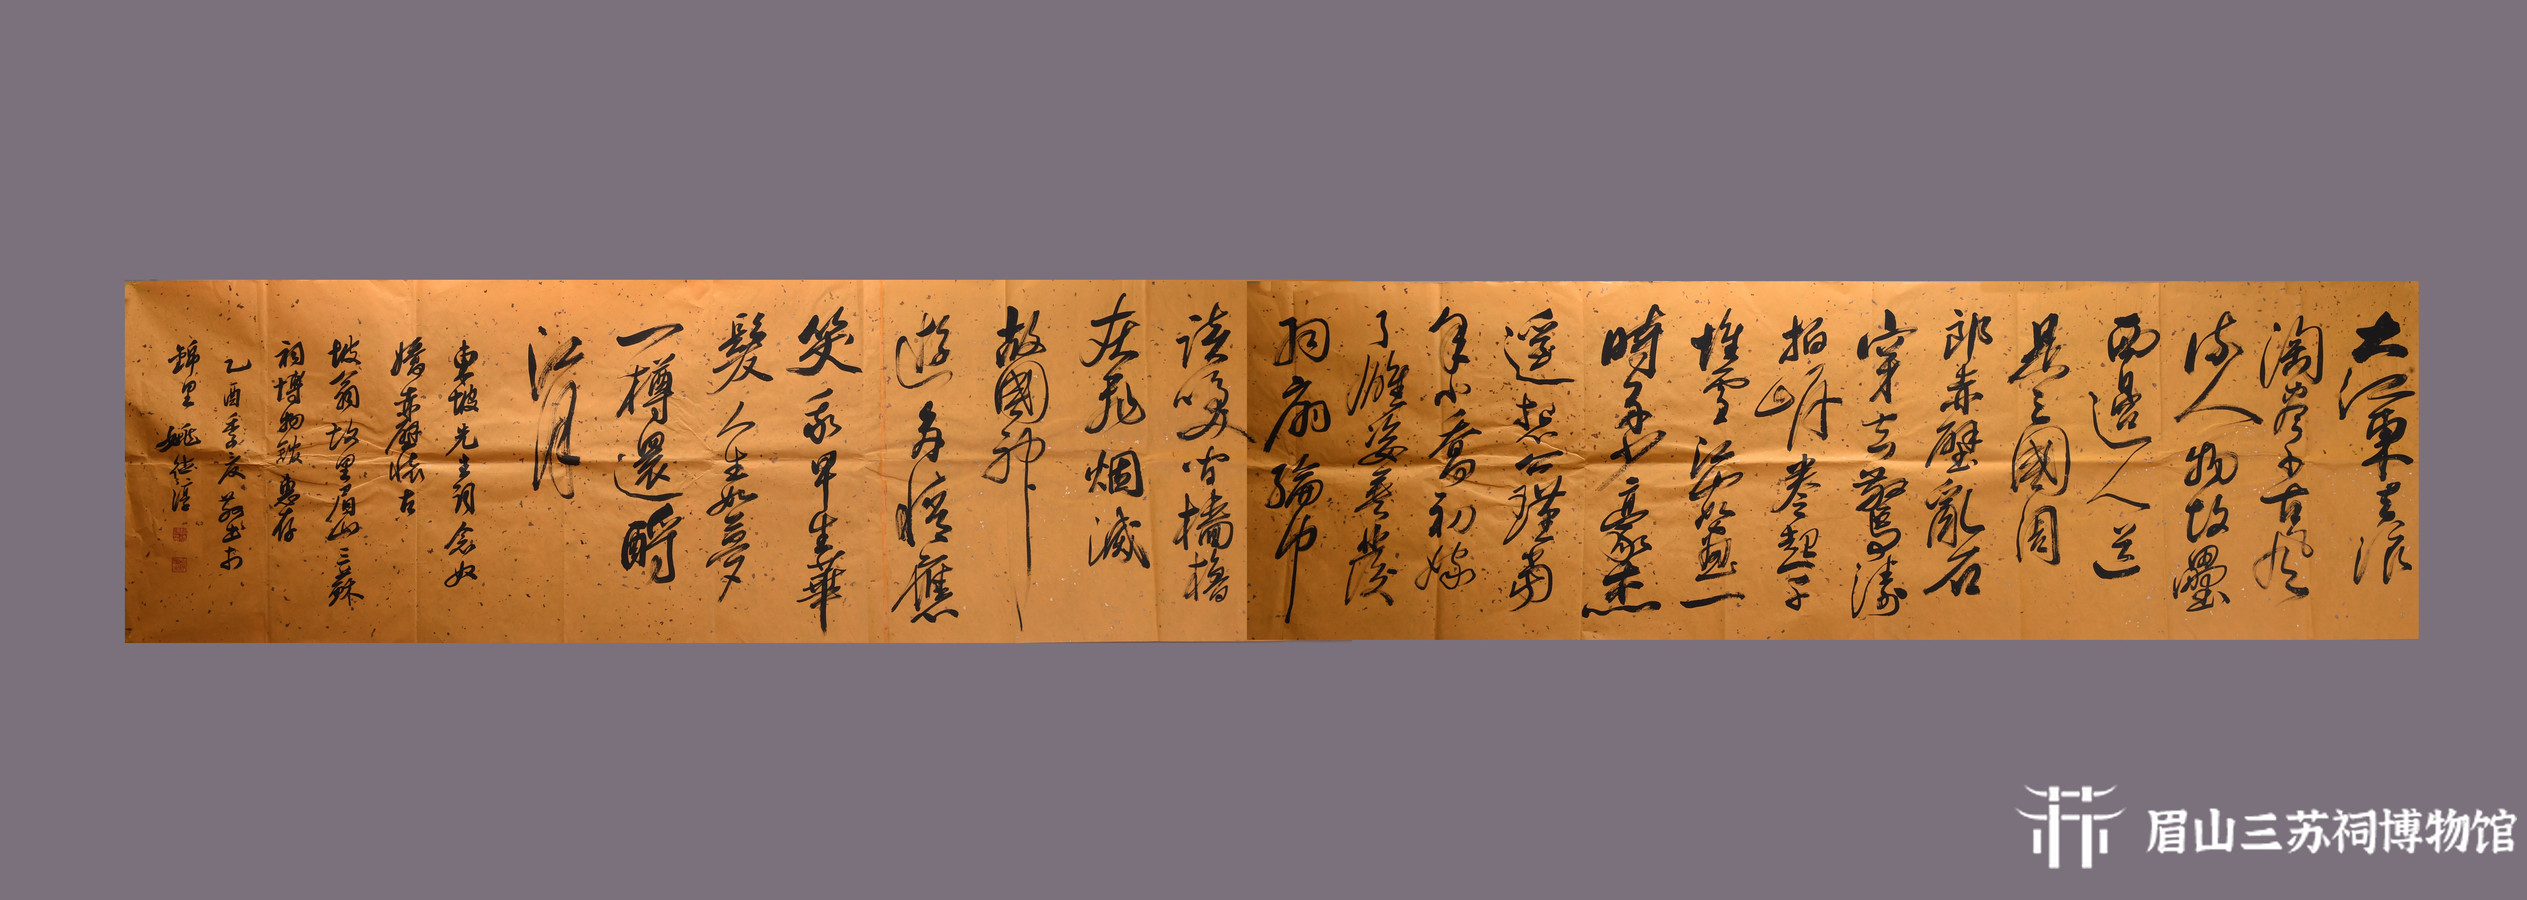 大江東去浪
淘盡千古風
流人物故壘
西邊人道
是三國周
郎赤壁亂石
穿空驚濤
拍岸卷起千
堆雪江山如畫一
時多少豪傑
遥想公瑾當
年小喬初嫁
了雄姿英發
羽扇綸巾
談笑間檣櫓
灰飛烟滅
故國神
遊多情應
笑我早生華
髮人生如夢
一樽還酹
江月
東坡先生詞念奴
嬌赤壁懷古
坡翁故里眉山三蘇
祠博物館惠存
乙酉季夏敬書於
錦里姚德淳
眉山三苏祠博物馆